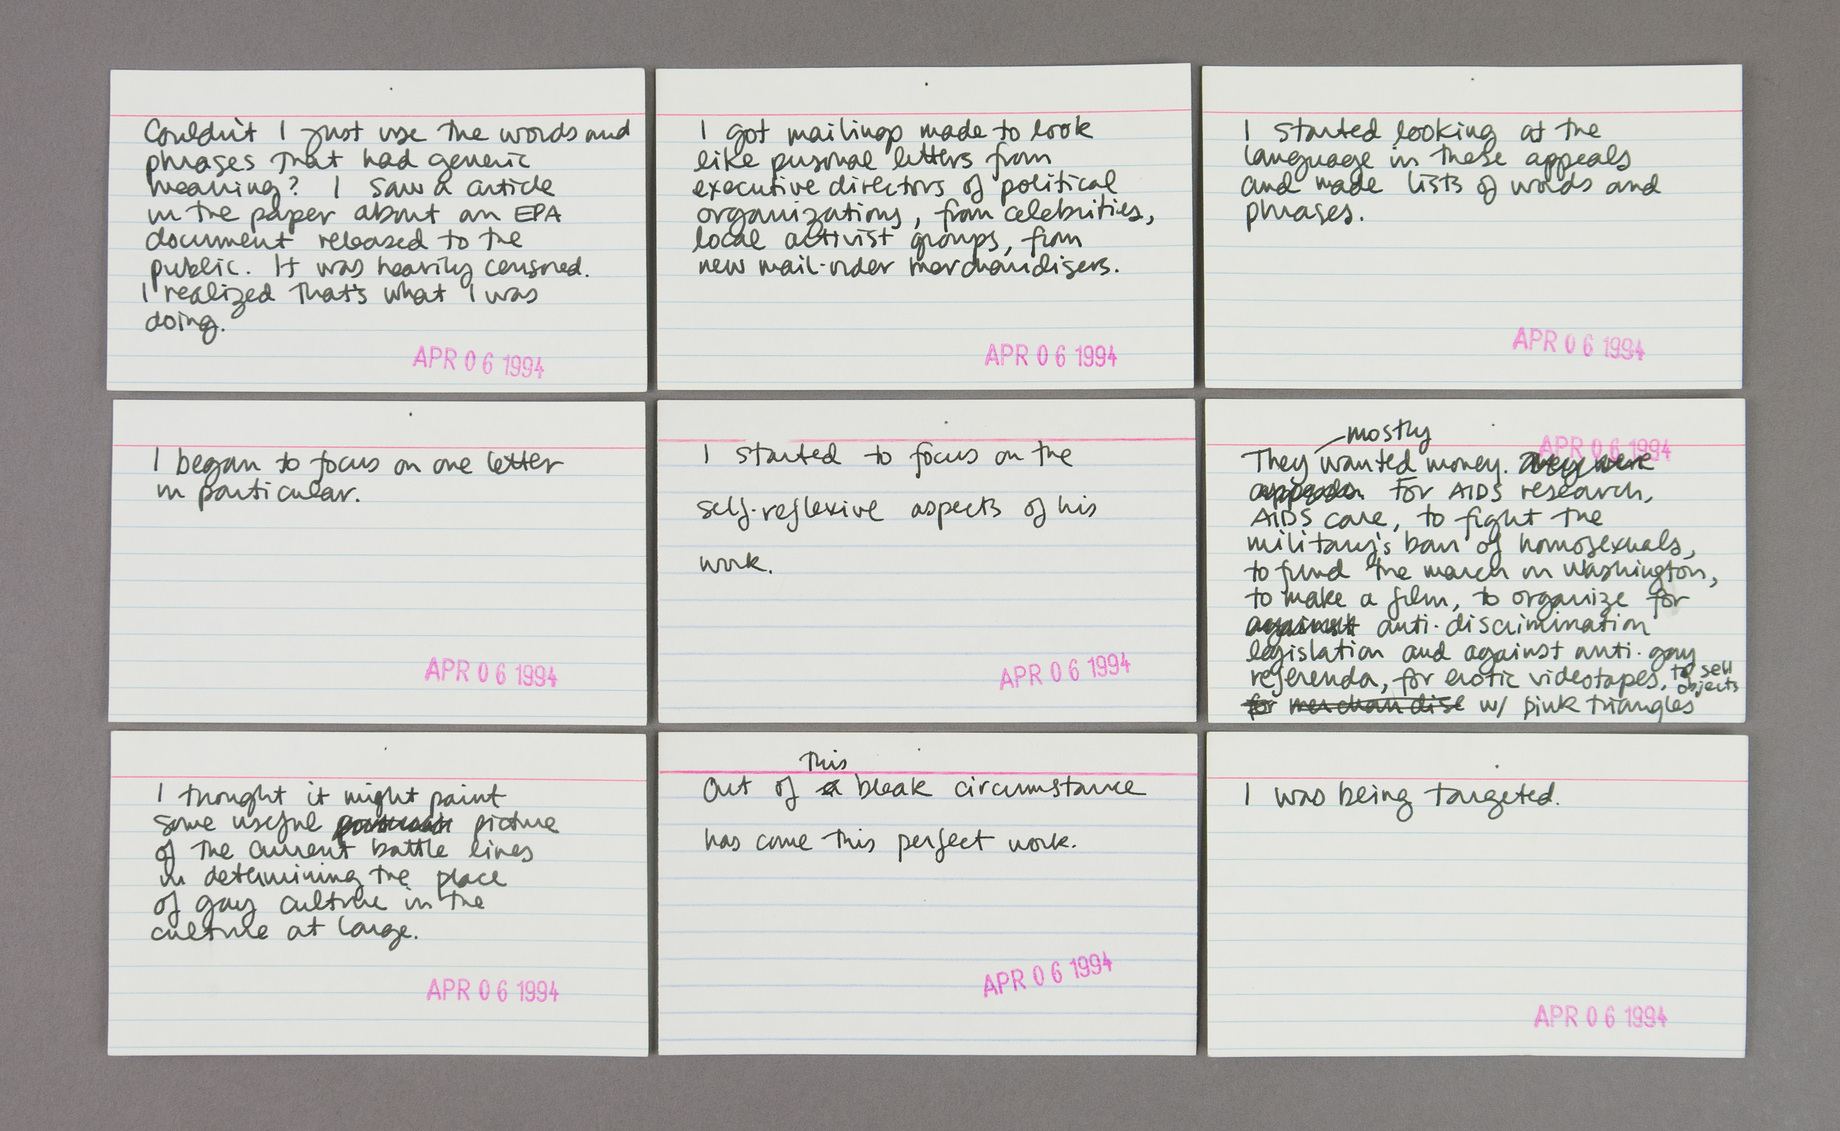 Couldn't I just use the words and
phrases that had generic
meaning? I saw a article
in the paper about an EPA
document released to the
public. It was heavily censored.
I realized that's what I was
doing.
APR 06 1994
I got mailings made to look
like personal letters from
executive directors of political
organizations, from celebrities,
local activist groups, from
new mail-order merchandisers.
APR 06 1994
I started looking at the
language in these appeals
and made lists of words and
phrases.
APR 06 1994
I began to focus on one letter
in particular.
APR 06 1994
I started to focus on the
self-reflexive aspects of his
work.
APR 06 1994
mostly
APR 06 1994
They wanted money. They were
appeals. for AIDS research,
AIDS care, to fight the
military's ban of homosexuals,
to fund the march on Washington,
to make a film, to organize for
against anti-discrimination
legislation and against anti-gay
referenda, for erotic videotapes, to sell
objects
for merchandise w/ pink triangles
APR 06 1994
I thought it might paint
some useful picture
of the current battle lines
in determining the place
of gay culture in the
culture at large.
APR 06 1994
This
Out of a bleak circumstance
has come this perfect work.
APR 06 1994
I was being targeted.
APR 06 1994